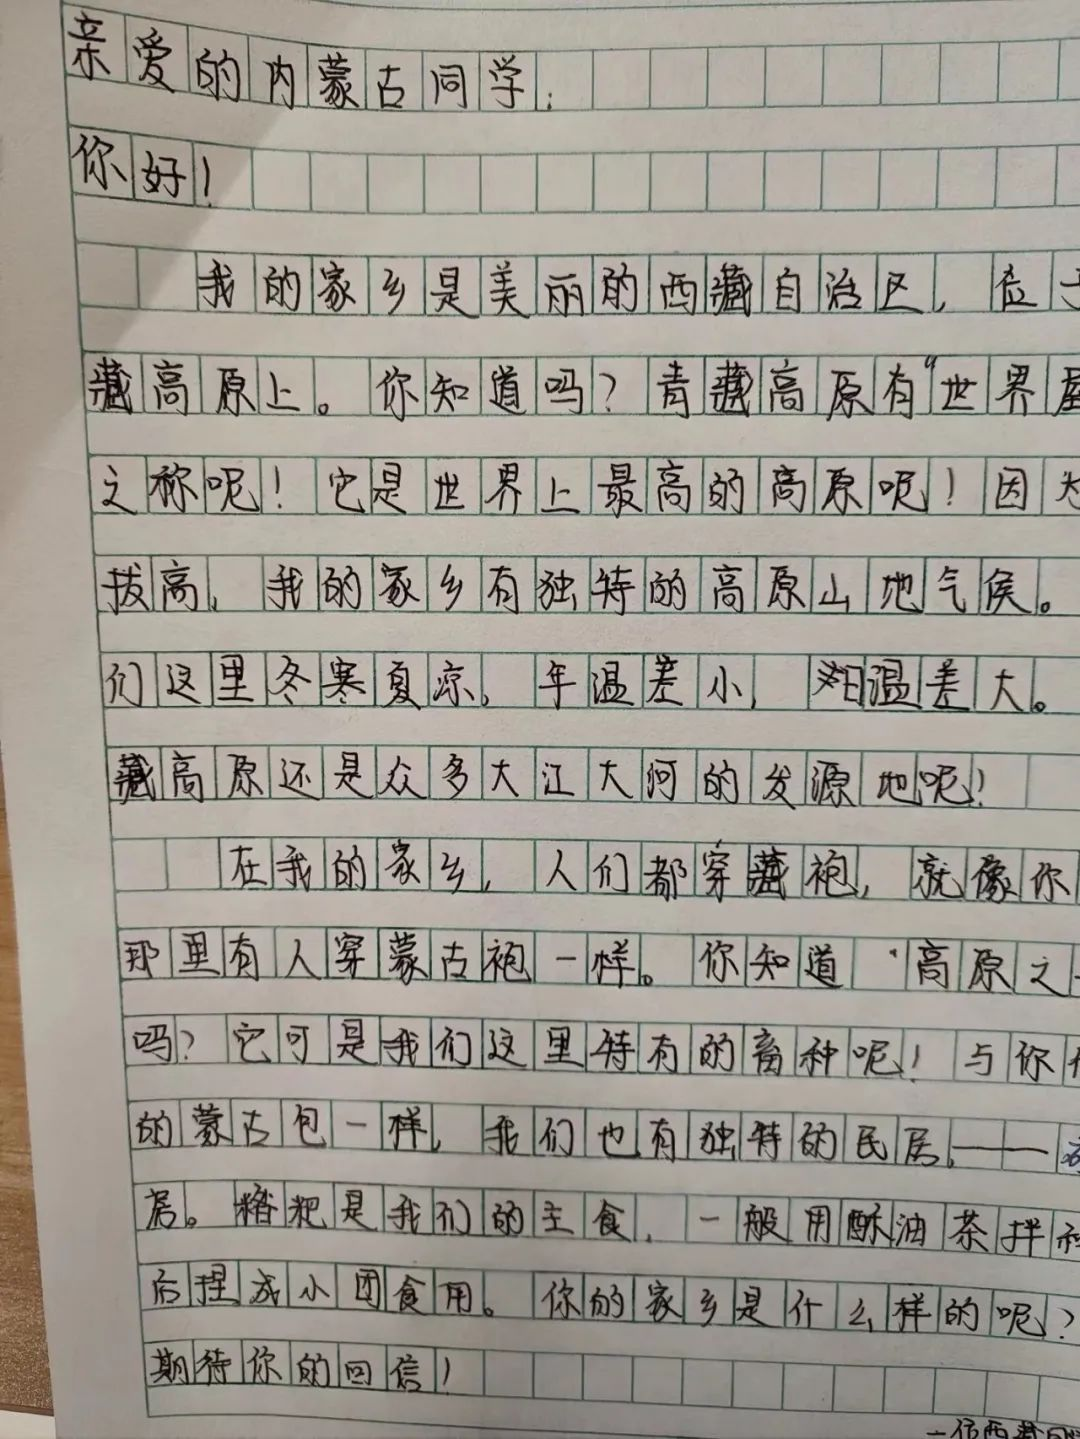 亲爱的内蒙古同学：
你好！
我的家乡是美丽的西藏自治区，位于
藏高原上。你知道吗？青藏高原有“世界屋
之称呢！它是世界上最高的高原呢！因为
拔高，我的家乡有独特的高原山地气候。
们这里冬寒夏凉，年温差小，日温差大。
藏高原还是众多大江大河的发源地呢！
在我的家乡，人们都穿藏袍，就像你
那里有人穿蒙古袍一样。你知道“高原之
吗？它可是我们这里特有的畜种呢！与你们
的蒙古包一样，我们也有独特的民居——
房。糌粑是我们的主食，一般用酥油茶拌和
后捏成小团食用。你的家乡是什么样的呢？
期待你的回信！
一位西藏同